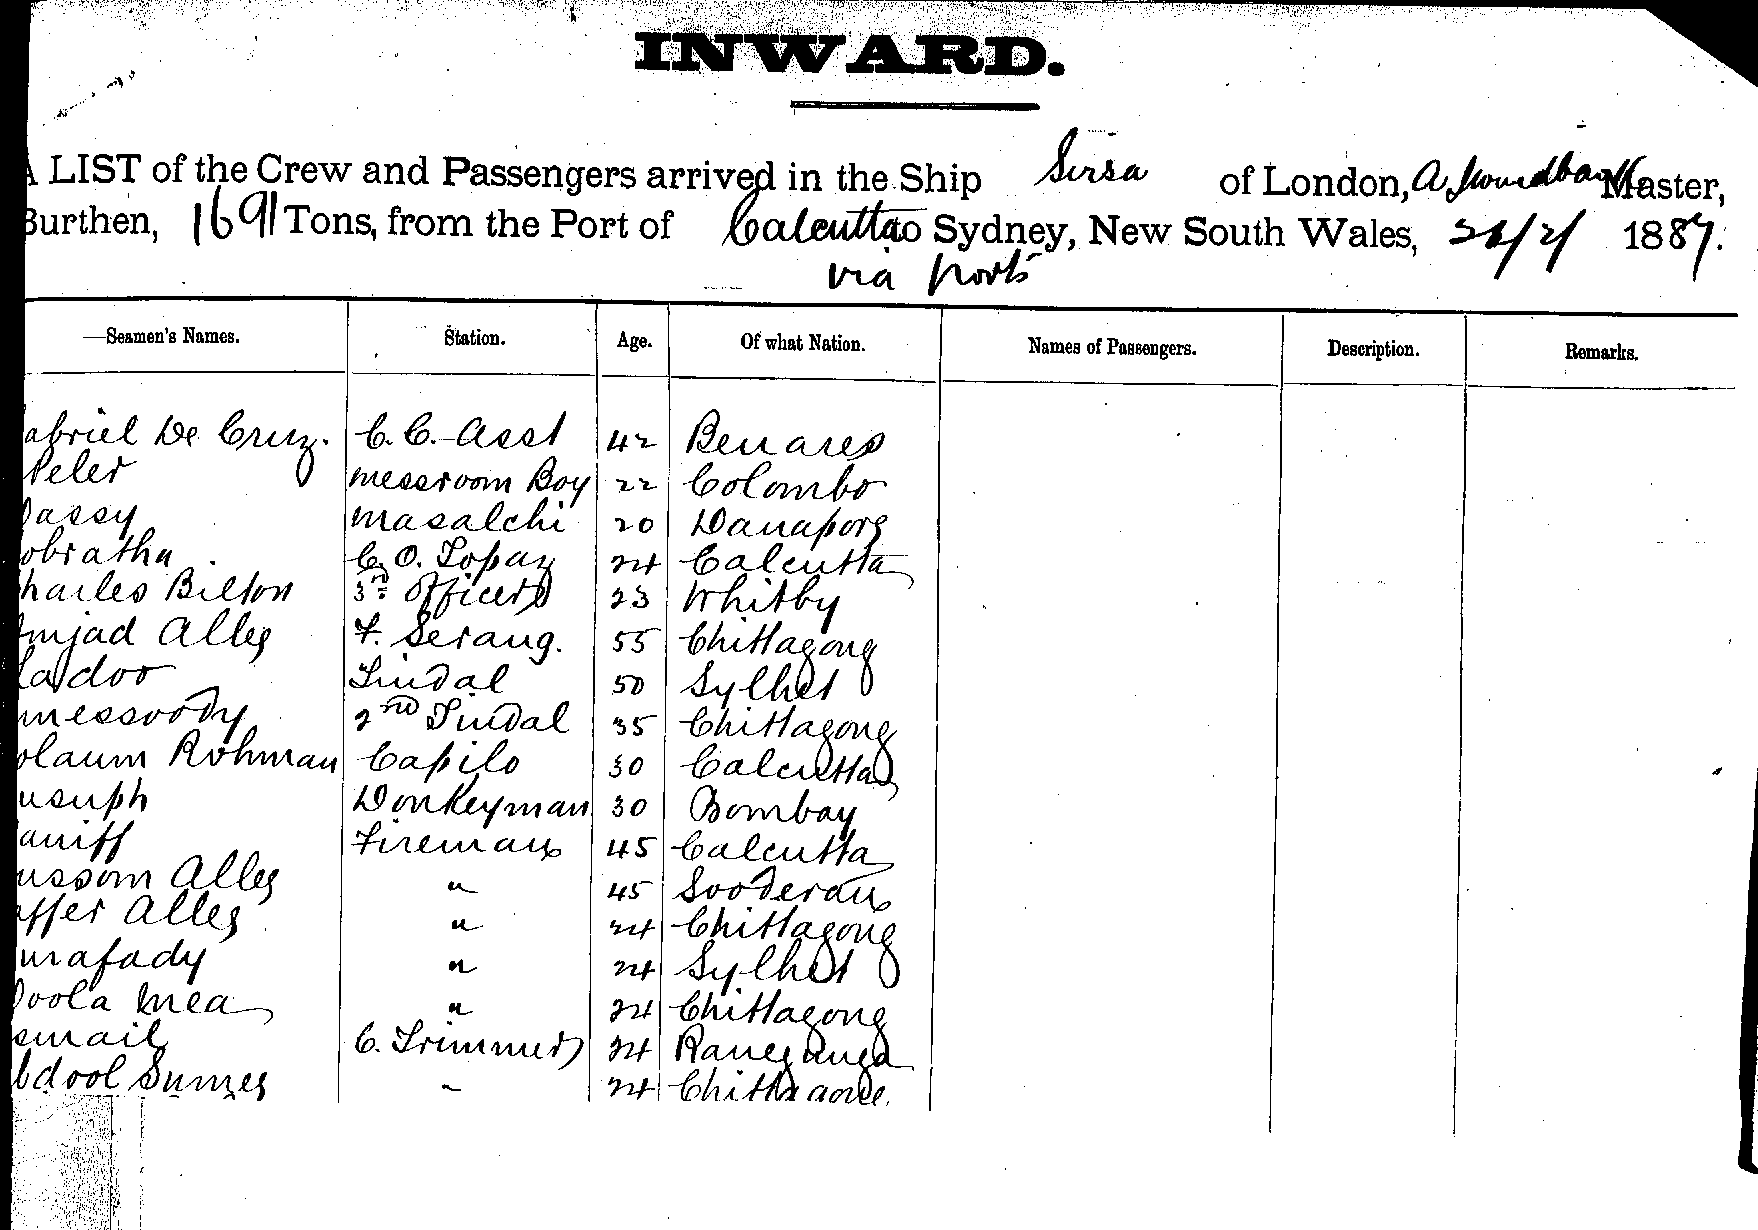 INWARD.
A LIST of the Crew and Passengers arrived in the Ship Sirsa of London, Master,
Burthen, 1691 Tons, from the Port of Calcutta to Sydney, New South Wales, 1887.
via Ports
Seamen's Names. Station. Age. Of what Nation. Names of Passengers. Description. Remarks.
abriel De Cruz. C. C. Asst 42 Benares
Peter Messroom Boy 22 Colombo
assy Masalchi 20 Danapore
obratha C. O. Topaz 24 Calcutta
harles Bilton 3rd Officer 23 Whitby
mjad Alley F. Serang. 55 Chittagong
adoo Tindal 50 Sylhet
messoody 2nd Tindal 35 Chittagong
olaum Rohman 30 Calcutta
usuph Donkeyman 30 Bombay
aniff Fireman 45 Calcutta
ussom Alley " 45
affer Alley " 24 Chittagong
urafady " 24 Sylhet
oola Mea " 24 Chittagong
smail C. Trimmer 24 Raneegunga
bdool " 24 Chittagong